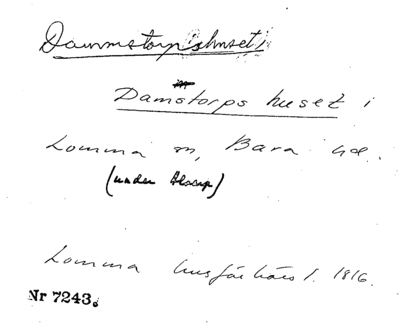 Dammstorp shuset i
Damstorps huset i
Lomma sn, Bara hd.
(under Alnarp)
Lomma husförhörsl. 1816.
Nr 7243.